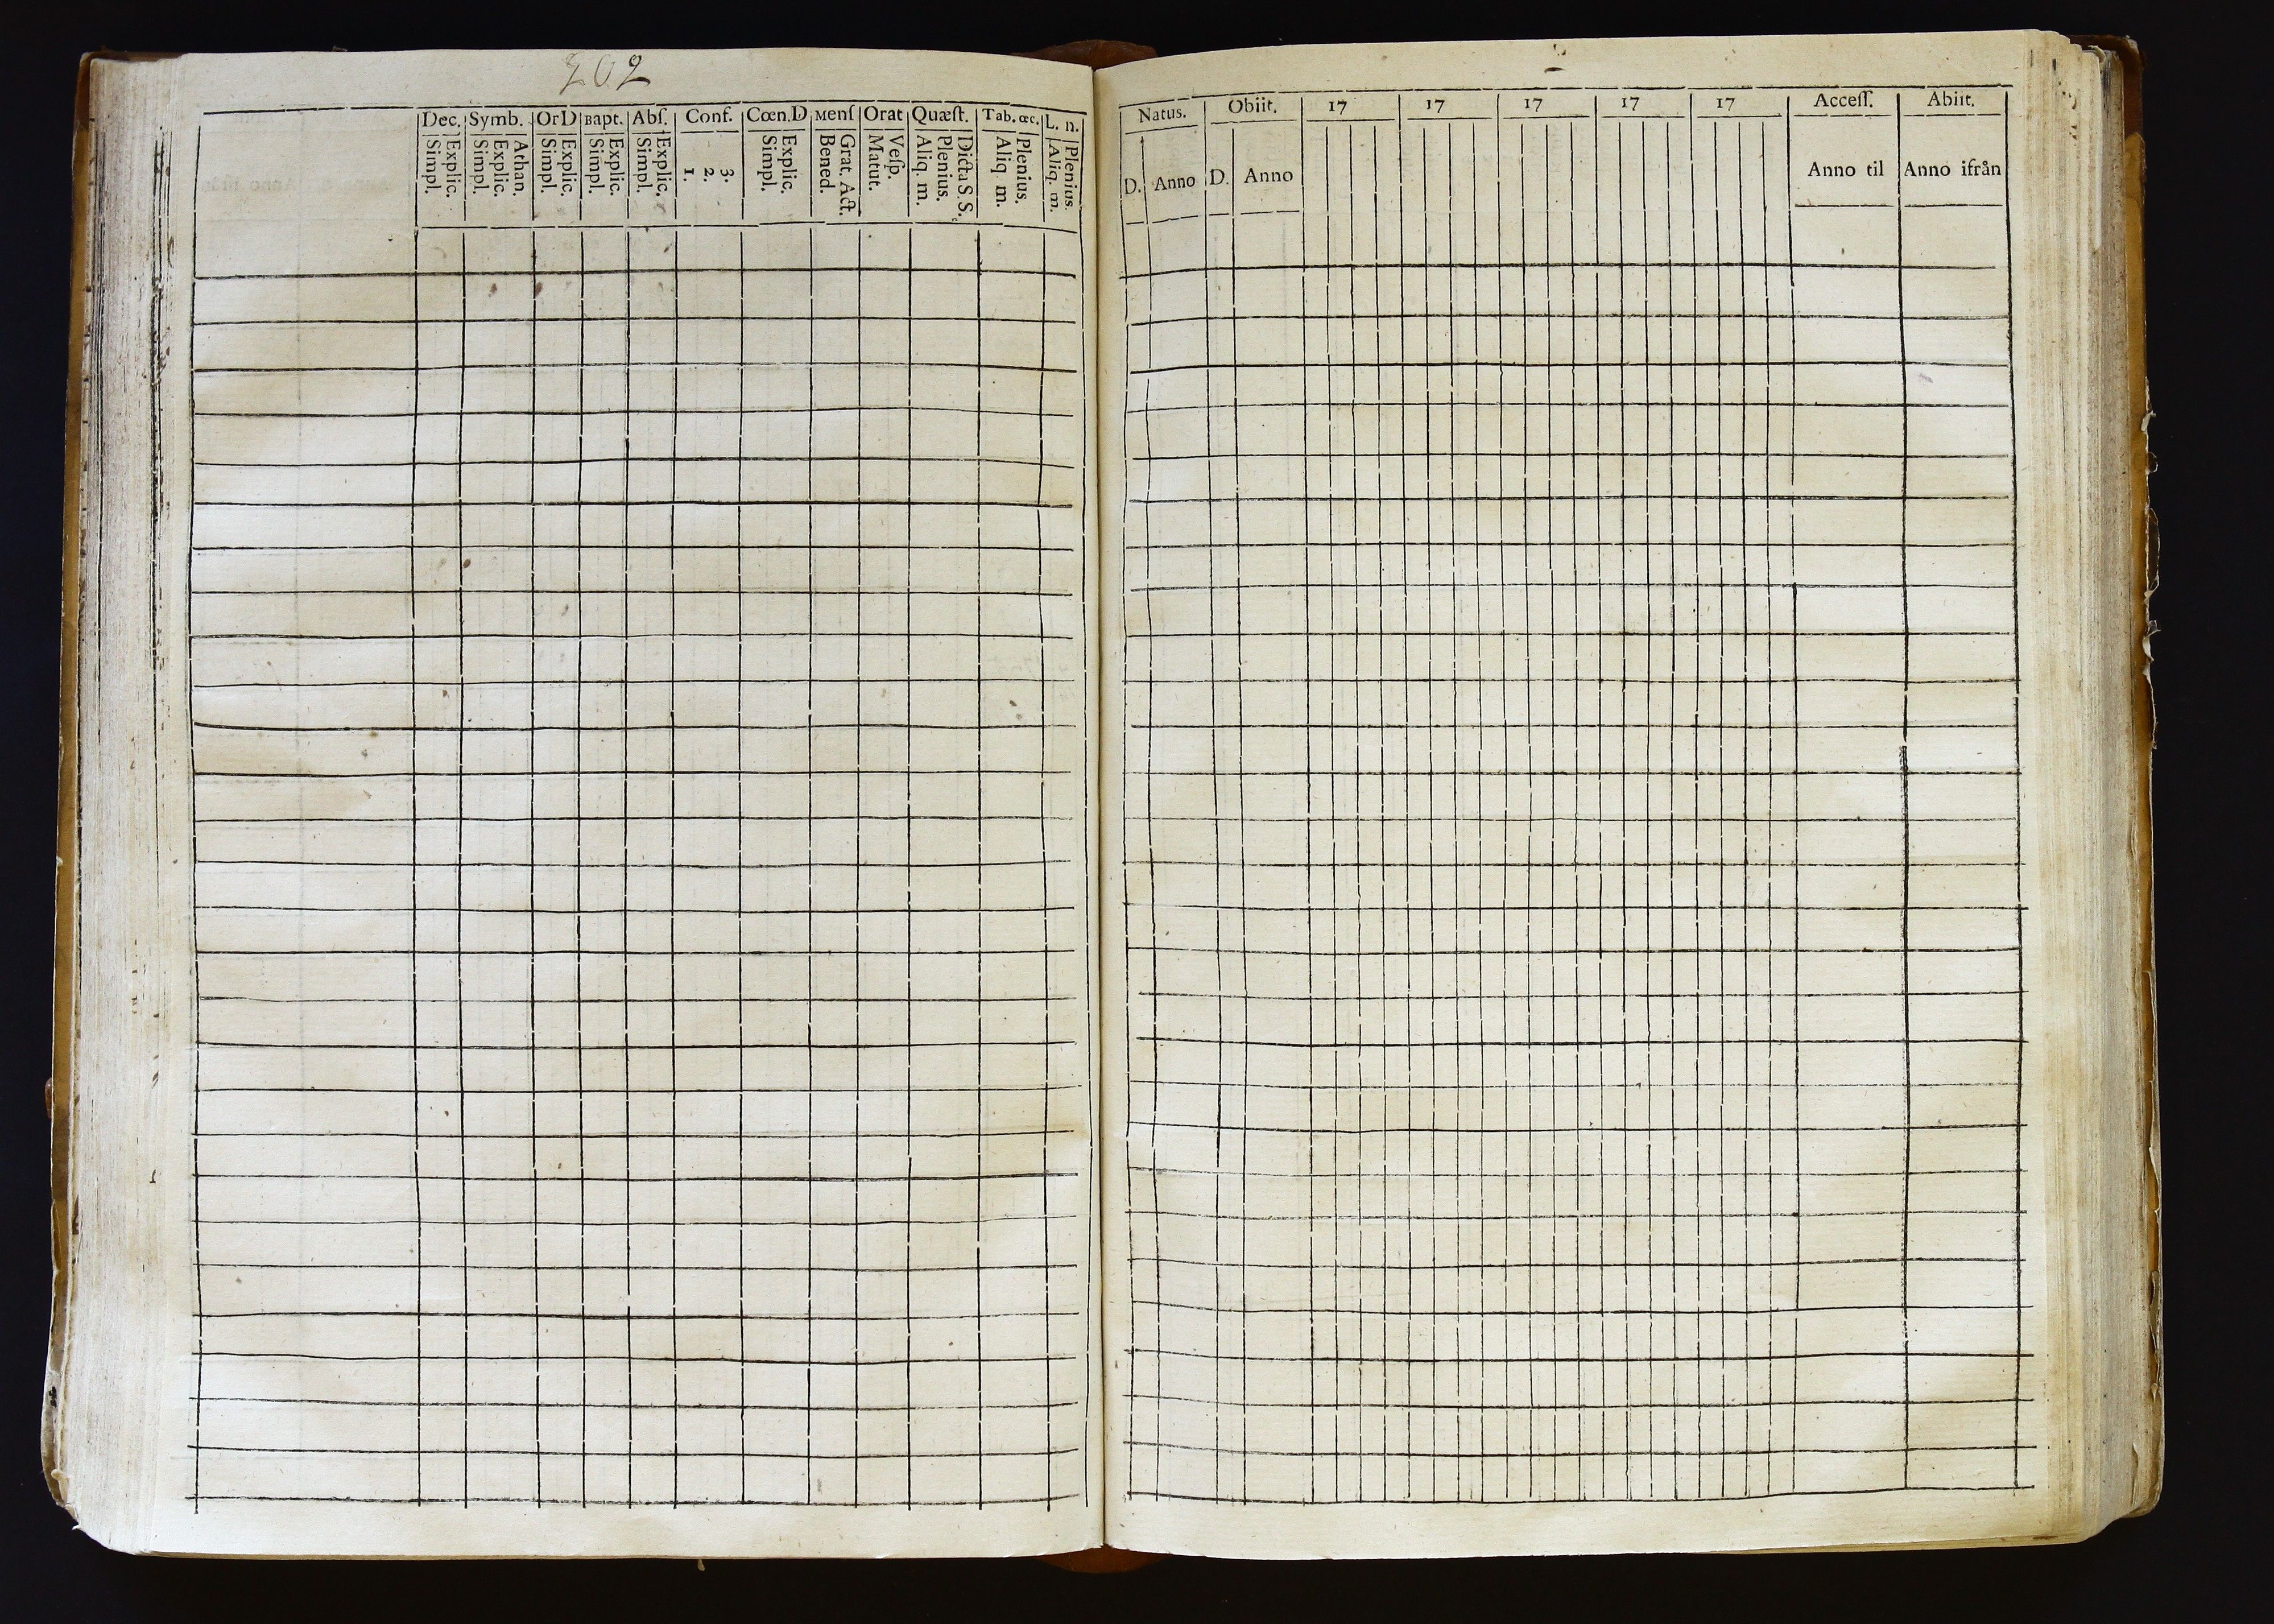 202
Dec. Symb. OrD Bapt. Abſ. Conf. Cœn.D Menſ Orat Quæſt. Tab. œc. L. n.
Simpl. Explic. Simpl. Explic. Athan. Simpl. Explic. Simpl. Explic. Simpl. Explic. 1. 2. 3. Simpl. Explic. Bened. Grat. Act. Matut. Veſp. Aliq. m. Plenius. Dicta S.S. Aliq. m. Plenius. Aliq. m. Plenius.
Natus. Obiit. 17 17 17 17 17 Acceſſ. Abiit.
D. Anno D. Anno Anno til Anno ifrån